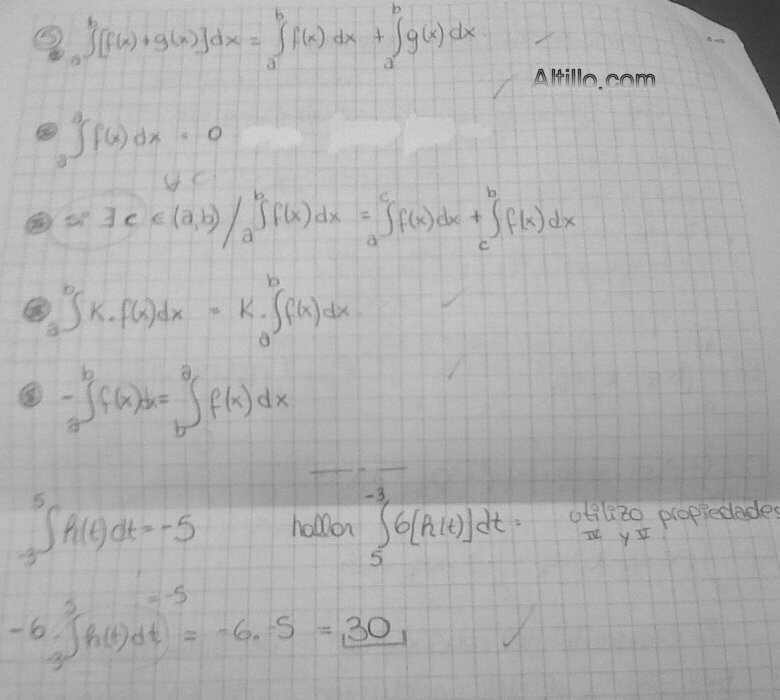 ∫ₐᵇ[f(x)+g(x)]dx = ∫ₐᵇ f(x) dx + ∫ₐᵇ g(x) dx
Altillo.com
∫ₐᵃ f(x) dx = 0
∀ c
∃ c ∈ (a,b) / ∫ₐᵇ f(x) dx = ∫ₐᶜ f(x) dx + ∫_c^b f(x) dx
∫ₐᵇ K.f(x)dx = K.∫ₐᵇ f(x) dx
-∫ₐᵇ f(x)dx = ∫_b^a f(x) dx
∫₋₃⁵ h(t) dt = -5 hallar ∫₅⁻³ 6[h(t)] dt = utilizo propiedades
IV y V
= -5
-6 . ∫₋₃⁵ h(t) dt = -6. -5 = 30